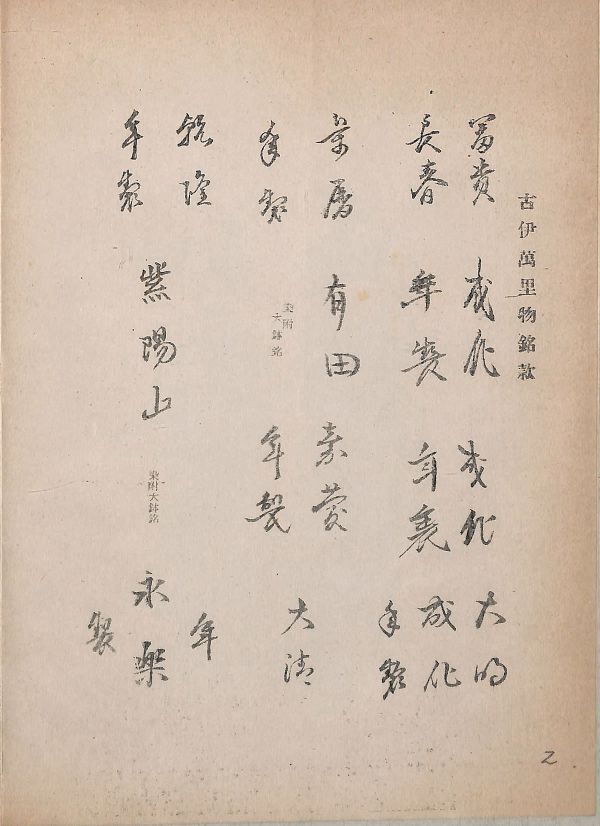 古伊萬里物銘款
富貴
長春
成化
年製
成化
年製
大明
成化
年製
暦
年製
有田
染附
大鉢銘
年製
大清
乾隆
年製
紫陽山
染附大鉢銘
年
永樂
製
2